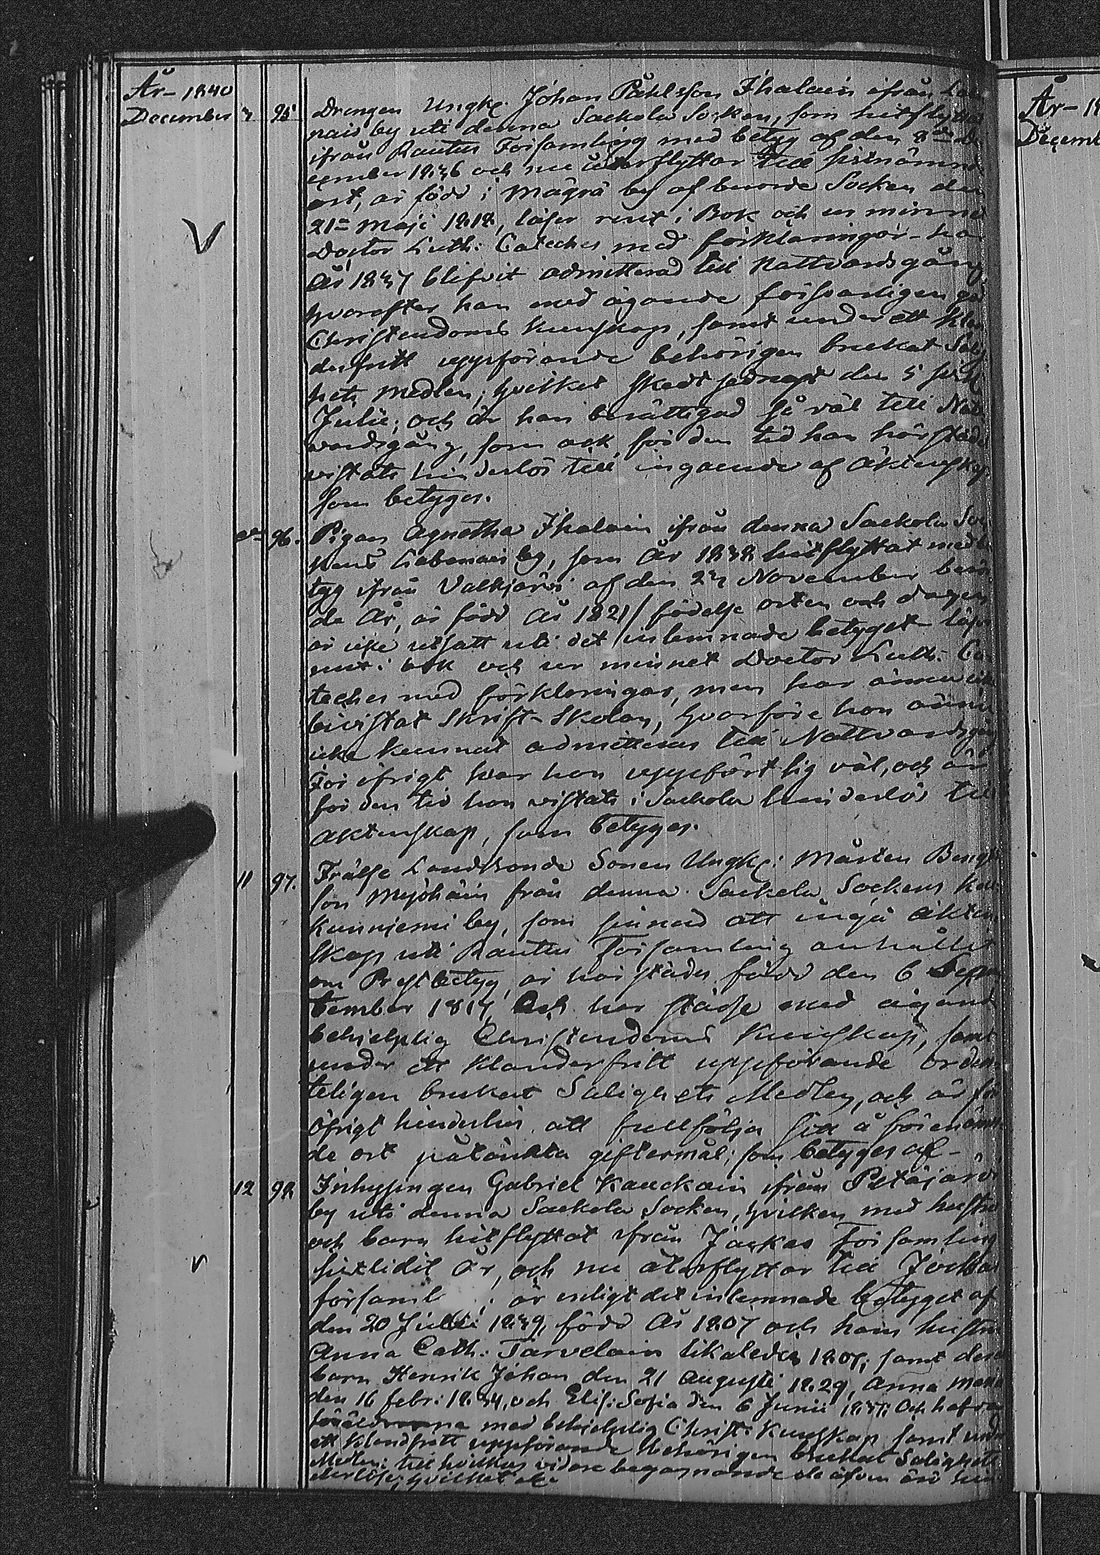 År 1840
December 7 95 Drengen Ungk: Johan Påhlsson Ihalain ifrån
nais by uti denna Sackola Socken, som hitflyttat
ifrån Rautus Församling med betyg af den 3de De
cember 1836 och nu återflyttar till sistnämnde
ort, är född i Magrä by af berörde Socken den
21sta Maji 1818, läser rent i Bok och ur minne
Doctor Luth: Cateches med förklaringar, har
År 1837 blifvit admitterad till Nattvardsgång
hvarefter han med ägande försvarligen god
Christendoms kunskap, samt under ett klan
derfritt uppförande behörigen brukat Salig
hets medlen, hvilket skedt sednast den 5 sistl
Julii; och är han berättigad så väl till Natt
vardsgång, som ock för den tid han härstädes
vistats hinderlös till ingående af Äktenskap
som betygas.
96. Pigan Agnetha Ihalain ifrån denna Sackola Soc
kens Liebenais by, som År 1838 hitflyttat med be
tyg ifrån Valkjärvi af den 27 November berör
de År, är född År 1821/ födelse orten och dagen
är icke utsatt uti det inlemnade betyget läser
rent i bok och ur minnet Doctor Luth: Ca
teches med förklaringar, men har ännu icke
bevistat Skrift-Skolan, hvarföre hon ännu
icke kunnat admitteras till Nattvardsgång
För öfrigt har hon uppfört sig väl, och är
för den tid hon vistats i Sackola hinderlös till
äktenskap, som betyges.
11 97. Frälse Landbonde Sonen Ungk: Mårten Bengts
son Myöhäin från denna Sackola Sockens
kunniemi by, som sinnad att ingå äkten
skap uti Rautus Församling anhållit
om Prestbetyg, är härstädes född den 6 Sep
tember 1817, Och har städse med ägande
behjelplig Christendoms kunskap, samt
under ett klanderfritt uppförande orden
teligen brukat Salighets Medlen, och är för
öfrigt hinderlös att fullfölja sitt å förenämn
de ort påtänkta giftermål; som betyges af-
12 98 Inhysingen Gabriel Kauckain ifrån Petäjärvi
by uti denna Sackola Socken, hvilken med hustru
och barn hitflyttat ifrån Jackas Församling
sistlidit År, och nu återflyttar till Jockas
församl: är enligt det inlemnade betyget af
den 20 Julii 1839, född År 1807 och hans hustru
Anna Cath: Tarvelain likaledes 1807, samt deras
barn Henrik Johan den 21 Augusti 1829, Anna Maria
den 16 febr: 1834, och Elis: Sofia den 6 Junii 1837. Och hafva
föräldrarna med behjelplig Christ: Kunskap samt under
ett klandfritt uppförande behörigen brukat Salighets
Medlen: till hvilkas vidare begagnande de äfven äro hin
derlöse; hvilket etc
År 18
Decemb